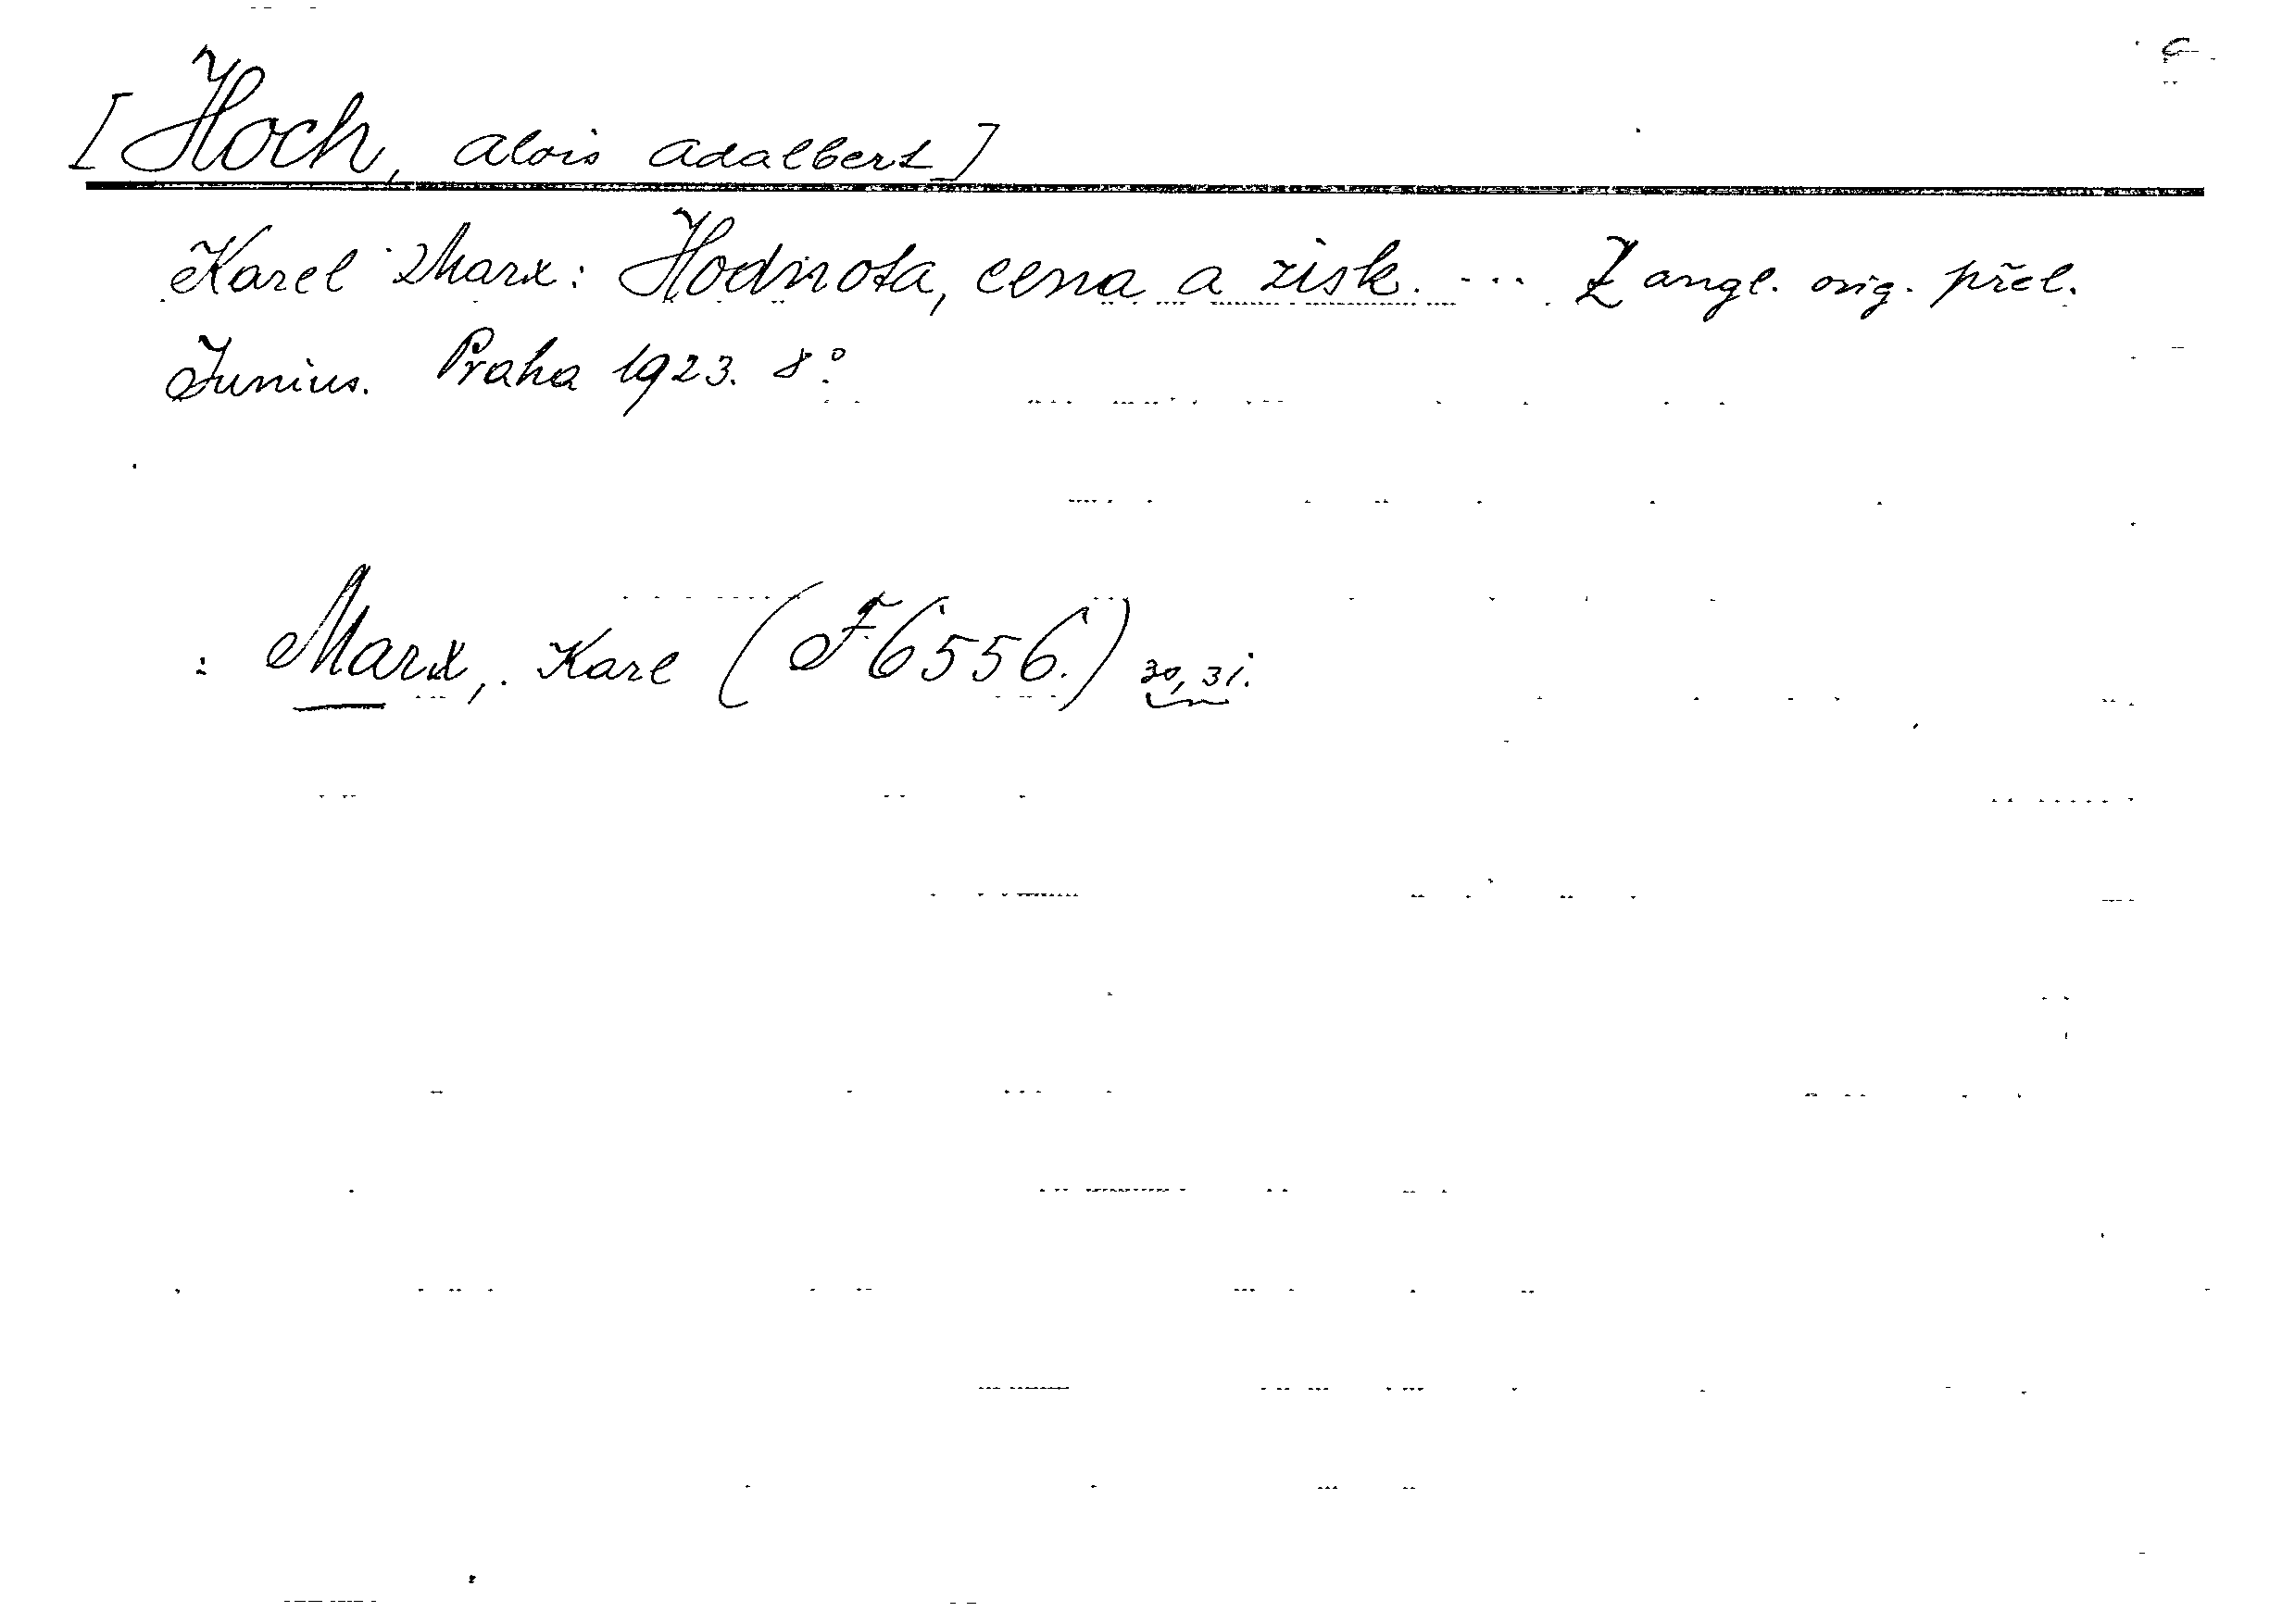 [Hoch, Alois Adalbert]
Karel Marx: Hodnota, cena a zisk. ... Z angl. orig. přel.
Junius. Praha 1923. 8°.
: Marx, Karl (F 6556.) 30, 31.